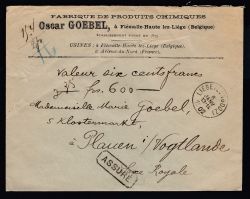 FABRIQUE DE PRODUITS CHIMIQUES
Oscar GOEBEL, à Flémalle-Haute lez-Liége (Belgique)
USINES : à Flémalle-Haute lez-Liége (Belgique),
(France)
Valeur six cents francs
frs. 600 —
Mademoiselle Marie Goebel,
5 Klostermarkt,
Plauen i/ Vogtlande
Royale
LIEGE
ASSURÉ